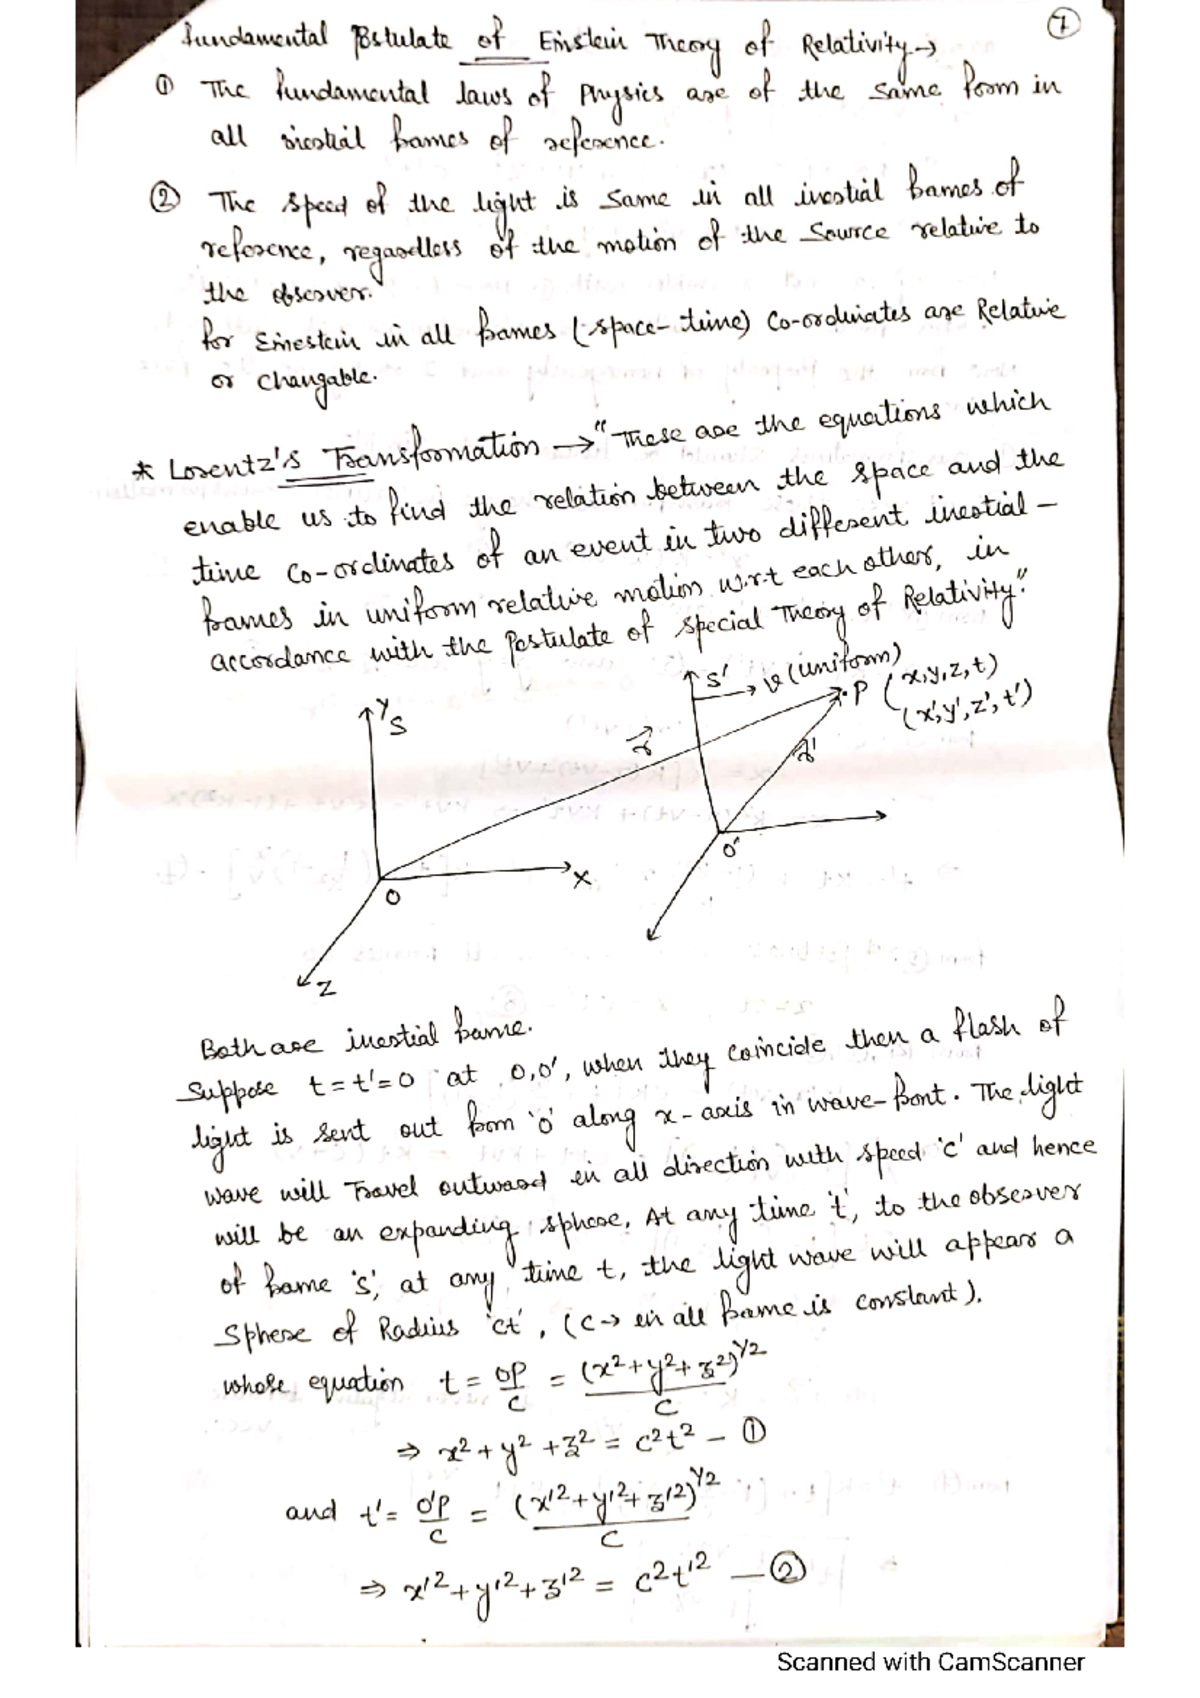 7
Fundamental Postulate of Einstein Theory of Relativity→
① The fundamental laws of Physics are of the same form in
all inertial frames of reference.
② The speed of the light is same in all inertial frames of
reference, regardless of the motion of the Source relative to
the observer.
for Einestein in all frames (space-time) Co-ordinates are Relative
or changable.
* Lorentz's Transformation → "These are the equations which
enable us to find the relation between the space and the
time co-ordinates of an event in two different inertial-
frames in uniform relative motion w.r.t each others, in
accordance with the Postulate of special Theory of Relativity."
Y
S
S'
→ v (uniform)
P (x,y,z,t)
(x',y',z',t')
r
r'
O
X
Z
O'
Both are inertial frame.
Suppose t=t'=0 at 0,0', when they coincide then a flash of
light is sent out from 'o' along x-axis in wave-front. The light
wave will Travel outward in all direction with speed 'c' and hence
will be an expanding sphere. At any time 't', to the observer
of frame 's', at any time t, the light wave will appears a
Sphere of Radius 'ct', (c→ in all frame is constant).
whose equation t = OP/C = (x²+y²+z²)^1/2/C
⇒ x²+y²+z² = c²t² – ①
and t' = O'P/C = (x'²+y'²+z'²)^1/2/C
⇒ x'²+y'²+z'² = c²t'² — ②
Scanned with CamScanner